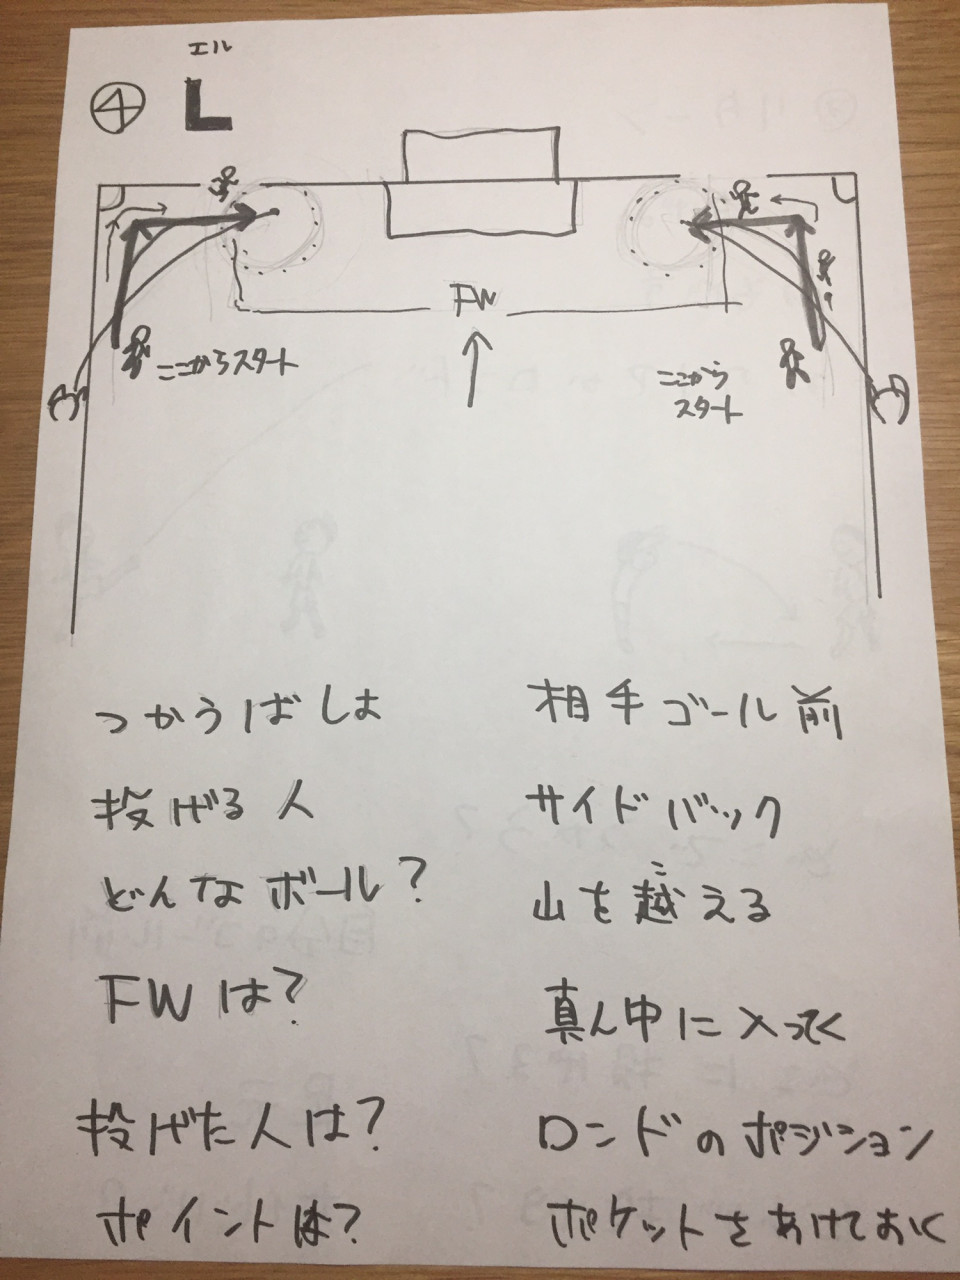 エル
④ L
FW
ここからスタート
ここから
スタート
つかうばしょ 相手ゴール前
投げる人 サイドバック
どんなボール? 山を越える
こ
FWは? 真ん中に入ってく
投げた人は? ロンドのポジション
ポイントは? ポケットをあけておく